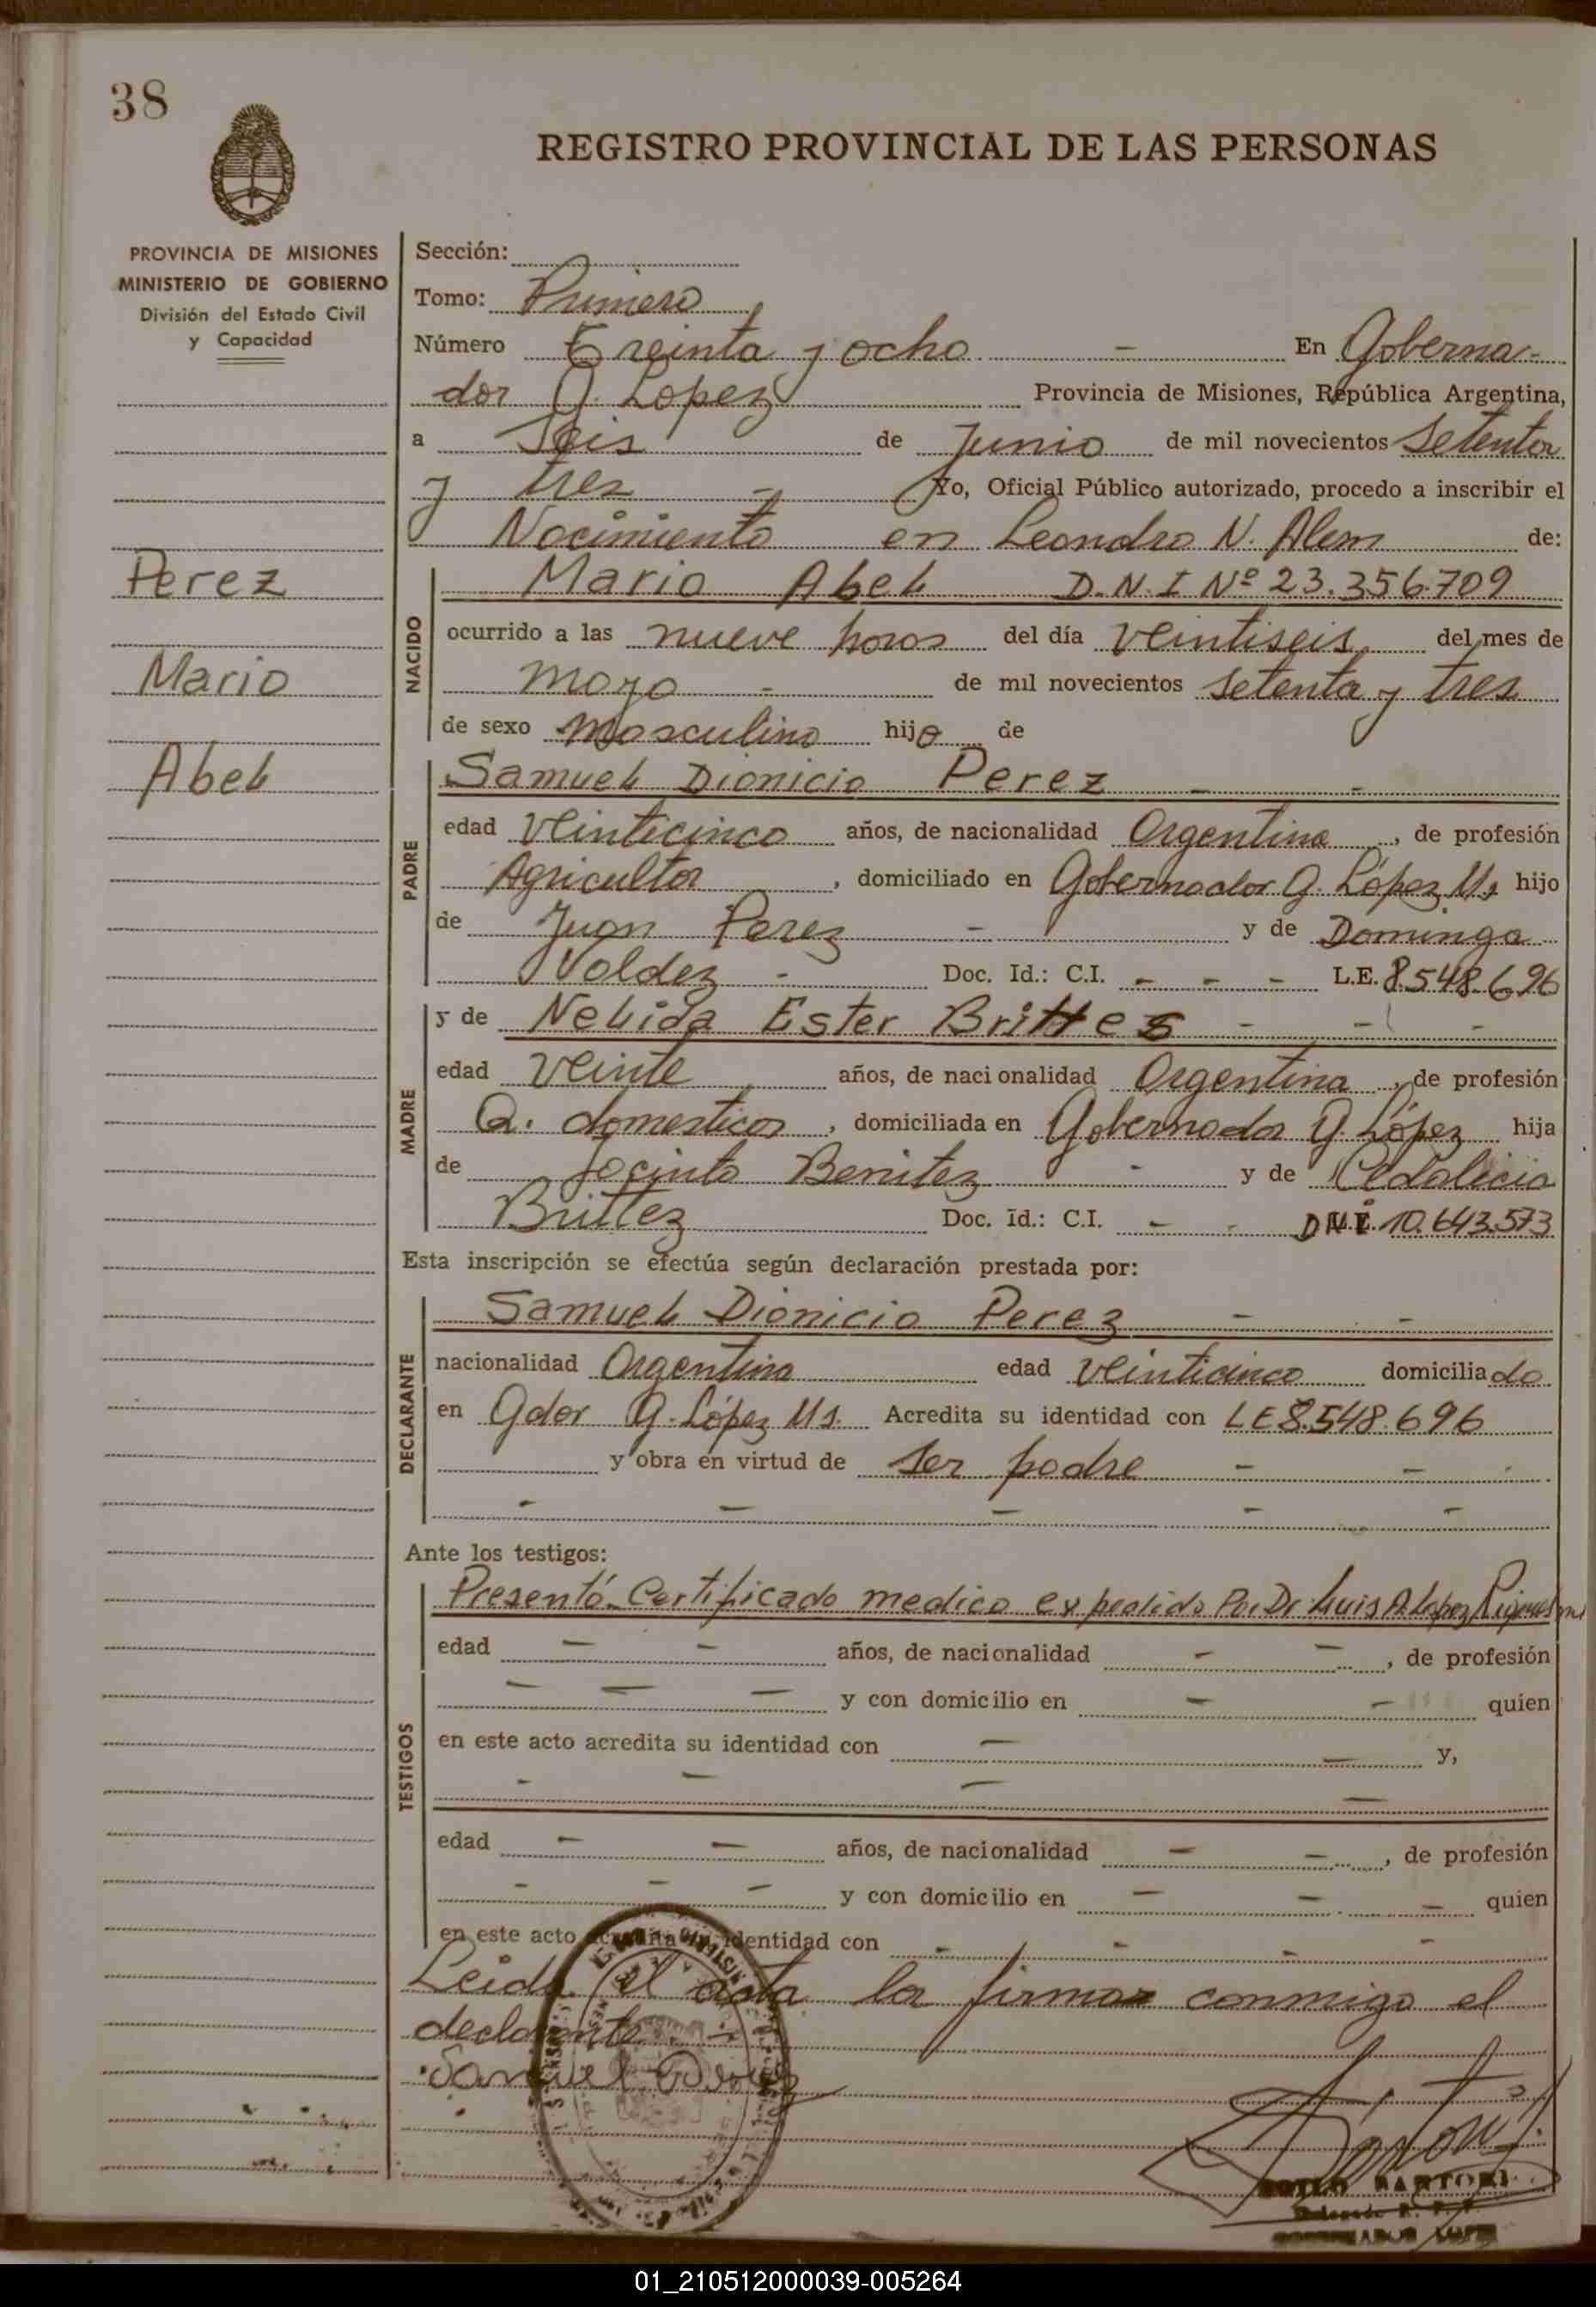 38
REGISTRO PROVINCIAL DE LAS PERSONAS
PROVINCIA DE MISIONES
MINISTERIO DE GOBIERNO
División del Estado Civil
y Capacidad
Perez
Mario
Abel
Sección:
Tomo: Primero
Número Treinta y ocho - En Goberna-
dor G. Lopez Provincia de Misiones, República Argentina,
a Seis de Junio de mil novecientos setenta
y tres - Yo, Oficial Público autorizado, procedo a inscribir el
Nacimiento en Leandro N. Alem de:
NACIDO
Mario Abel D.N.I Nº 23.356.709
ocurrido a las nueve horas del día veintiseis del mes de
mayo - de mil novecientos setenta y tres
de sexo masculino hijo de
PADRE
Samuel Dionicio Perez - -
edad veinticinco años, de nacionalidad Argentina, de profesión
Agricultor, domiciliado en Gobernador G. López Ms hijo
de Juan Perez - y de Dominga
Valdez - Doc. Id.: C.I. - - - L.E. 8.548.696
MADRE
y de Nelida Ester Brittes - - -
edad veinte años, de nacionalidad Argentina, de profesión
Q. domesticos, domiciliada en Gobernador G. López hija
de Jacinto Benitez - y de
Brittez Doc. Id.: C.I. - - D.N.I. 10.643.573
Esta inscripción se efectúa según declaración prestada por:
DECLARANTE
Samuel Dionicio Perez - -
nacionalidad Argentina edad veinticinco domiciliado
en Gdor G. López Ms. Acredita su identidad con L E 8.548.696
y obra en virtud de ser padre - -
- - - - -
Ante los testigos:
TESTIGOS
Presentó Certificado medico expedido Por Dr. Luis A. Lopez
edad - - años, de nacionalidad - -, de profesión
- - - y con domicilio en - - quien
en este acto acredita su identidad con - - y,
- - - -
edad - - años, de nacionalidad - -, de profesión
- - - y con domicilio en - - - quien
en este acto acredita su identidad con - - - -
Leida el acta la firma conmigo el
declarante -
Samuel Perez
SARTORI
GOBERNADOR LOPEZ
01_210512000039-005264